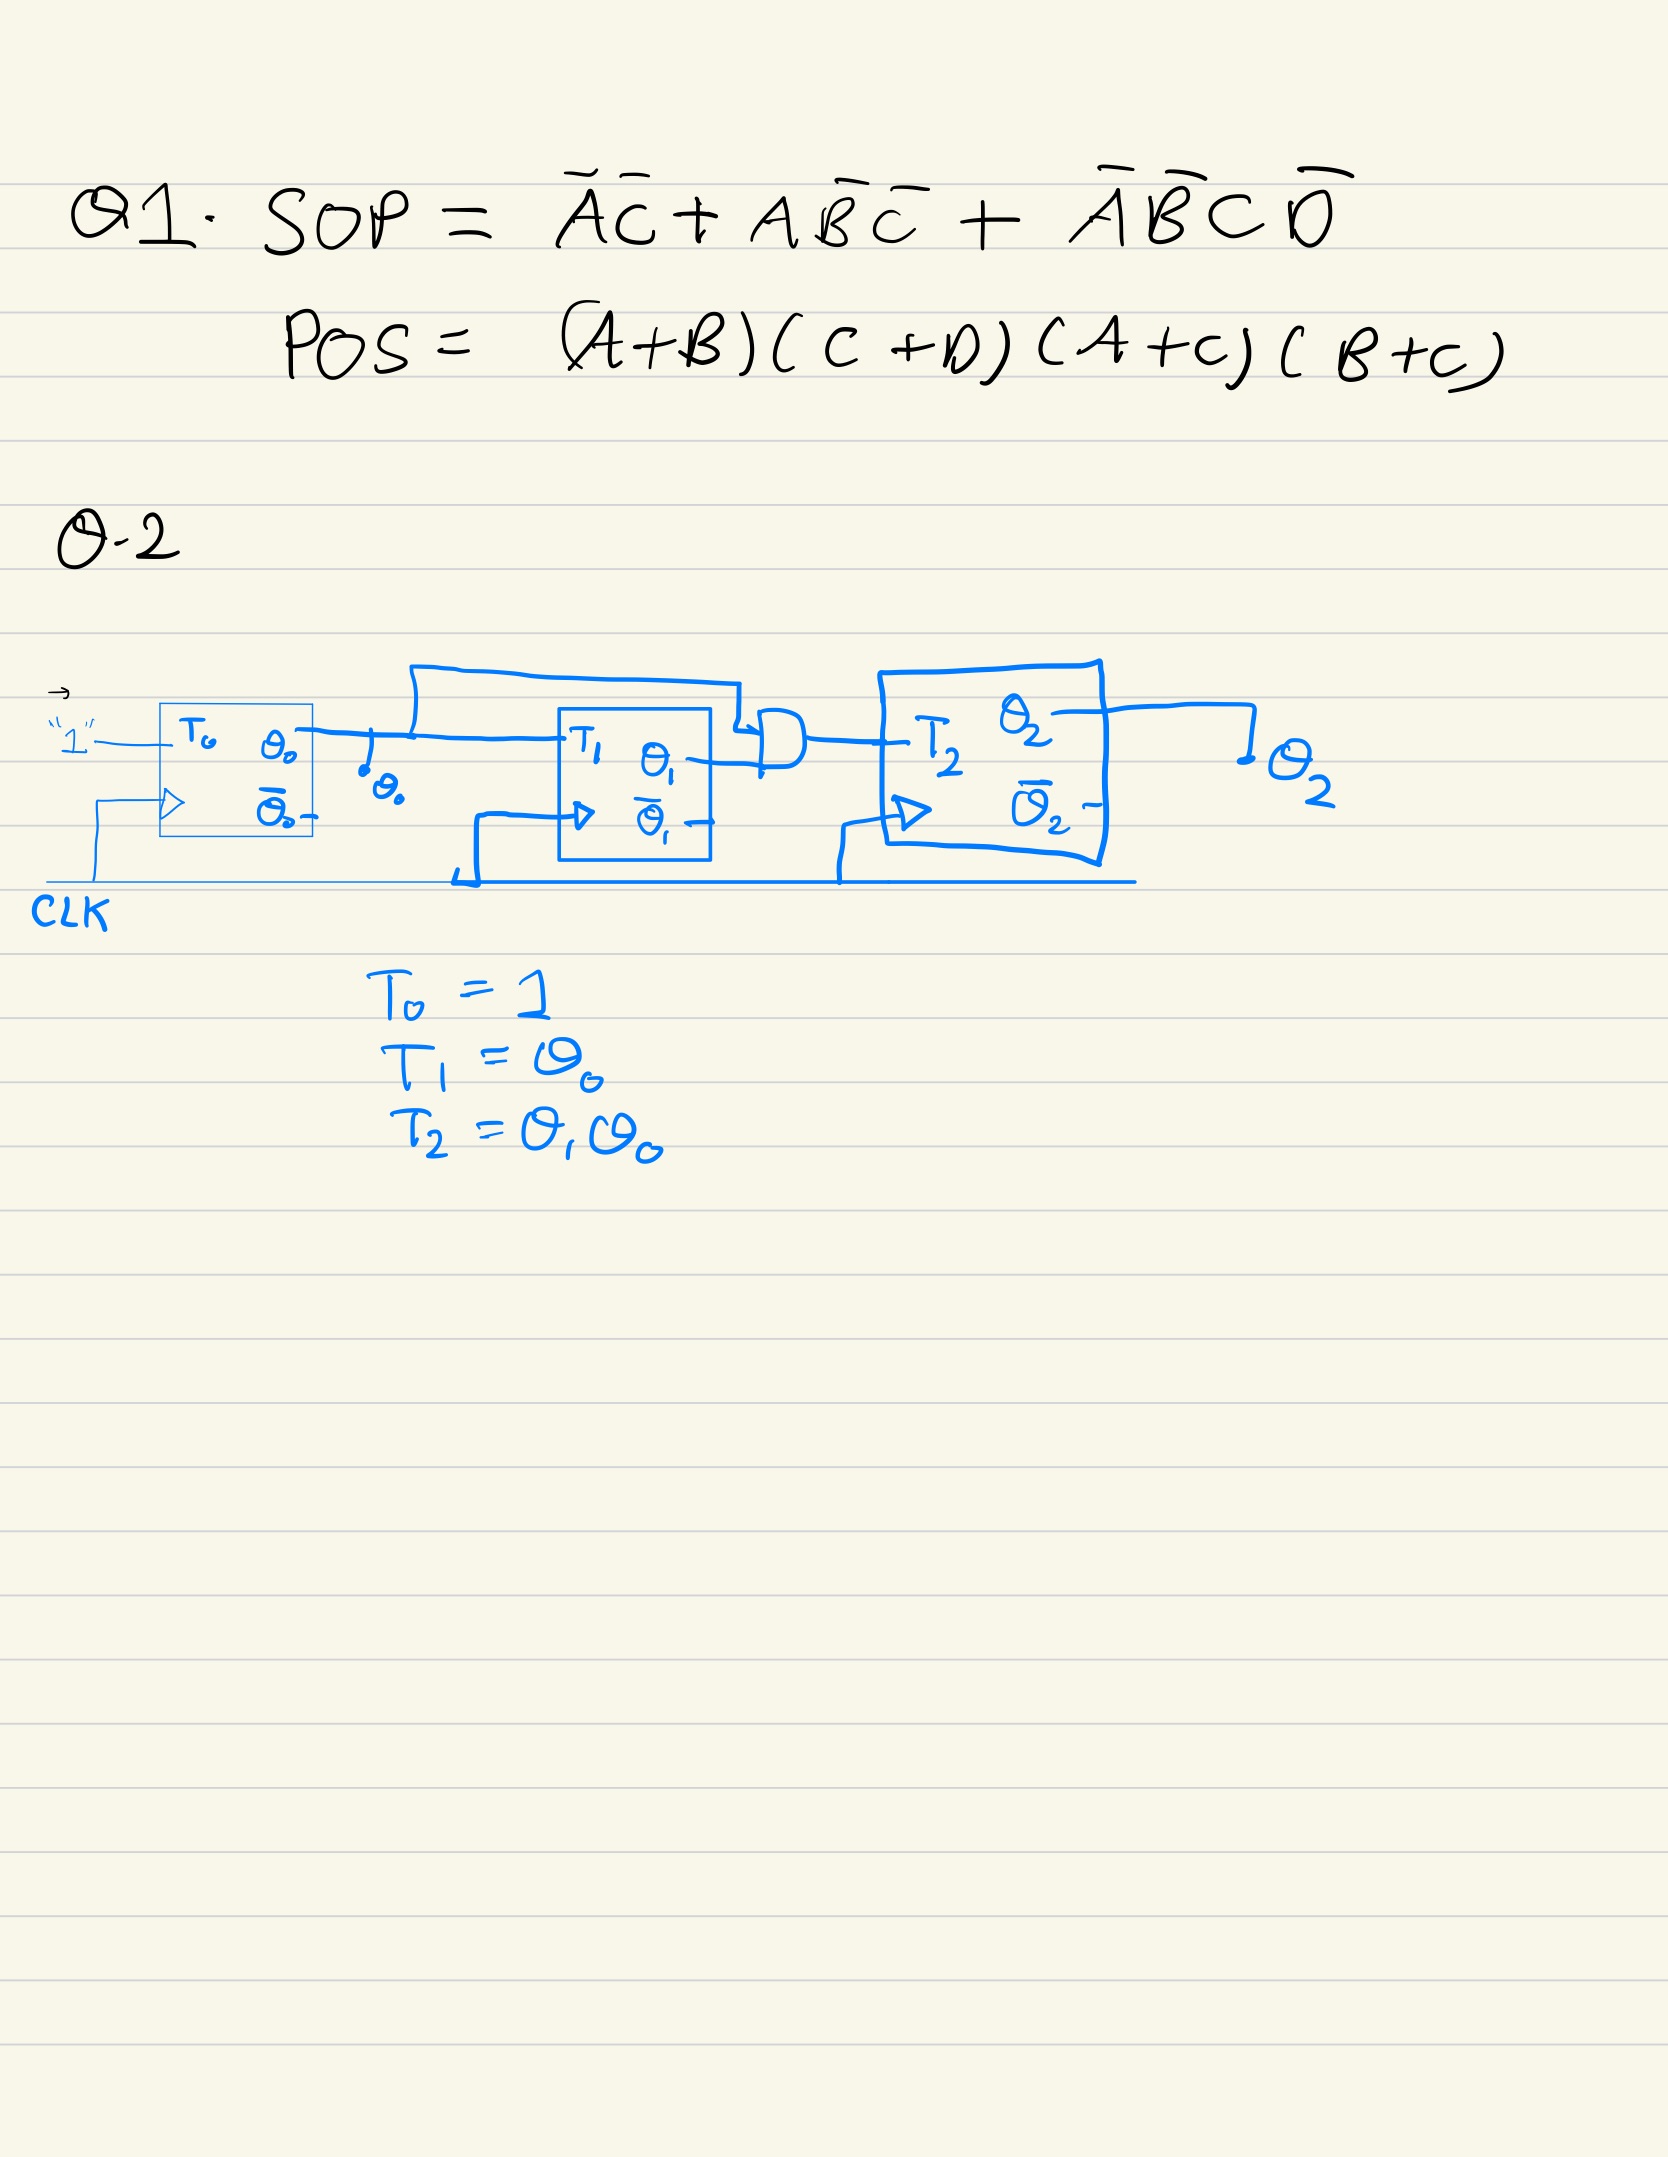 Q1. SOP = A̅C̅ + AB̅C̅ + A̅B̅CD̅
POS = (A+B)(C+D)(A+C)(B+C)
Q-2
→
"1" T₀ Q₀ T₁ Q₁ T₂ Q₂ Q₂
Q̅₀ Q₀ Q̅₁ Q̅₂
CLK
T₀ = 1
T₁ = Q₀
T₂ = Q₁Q₀